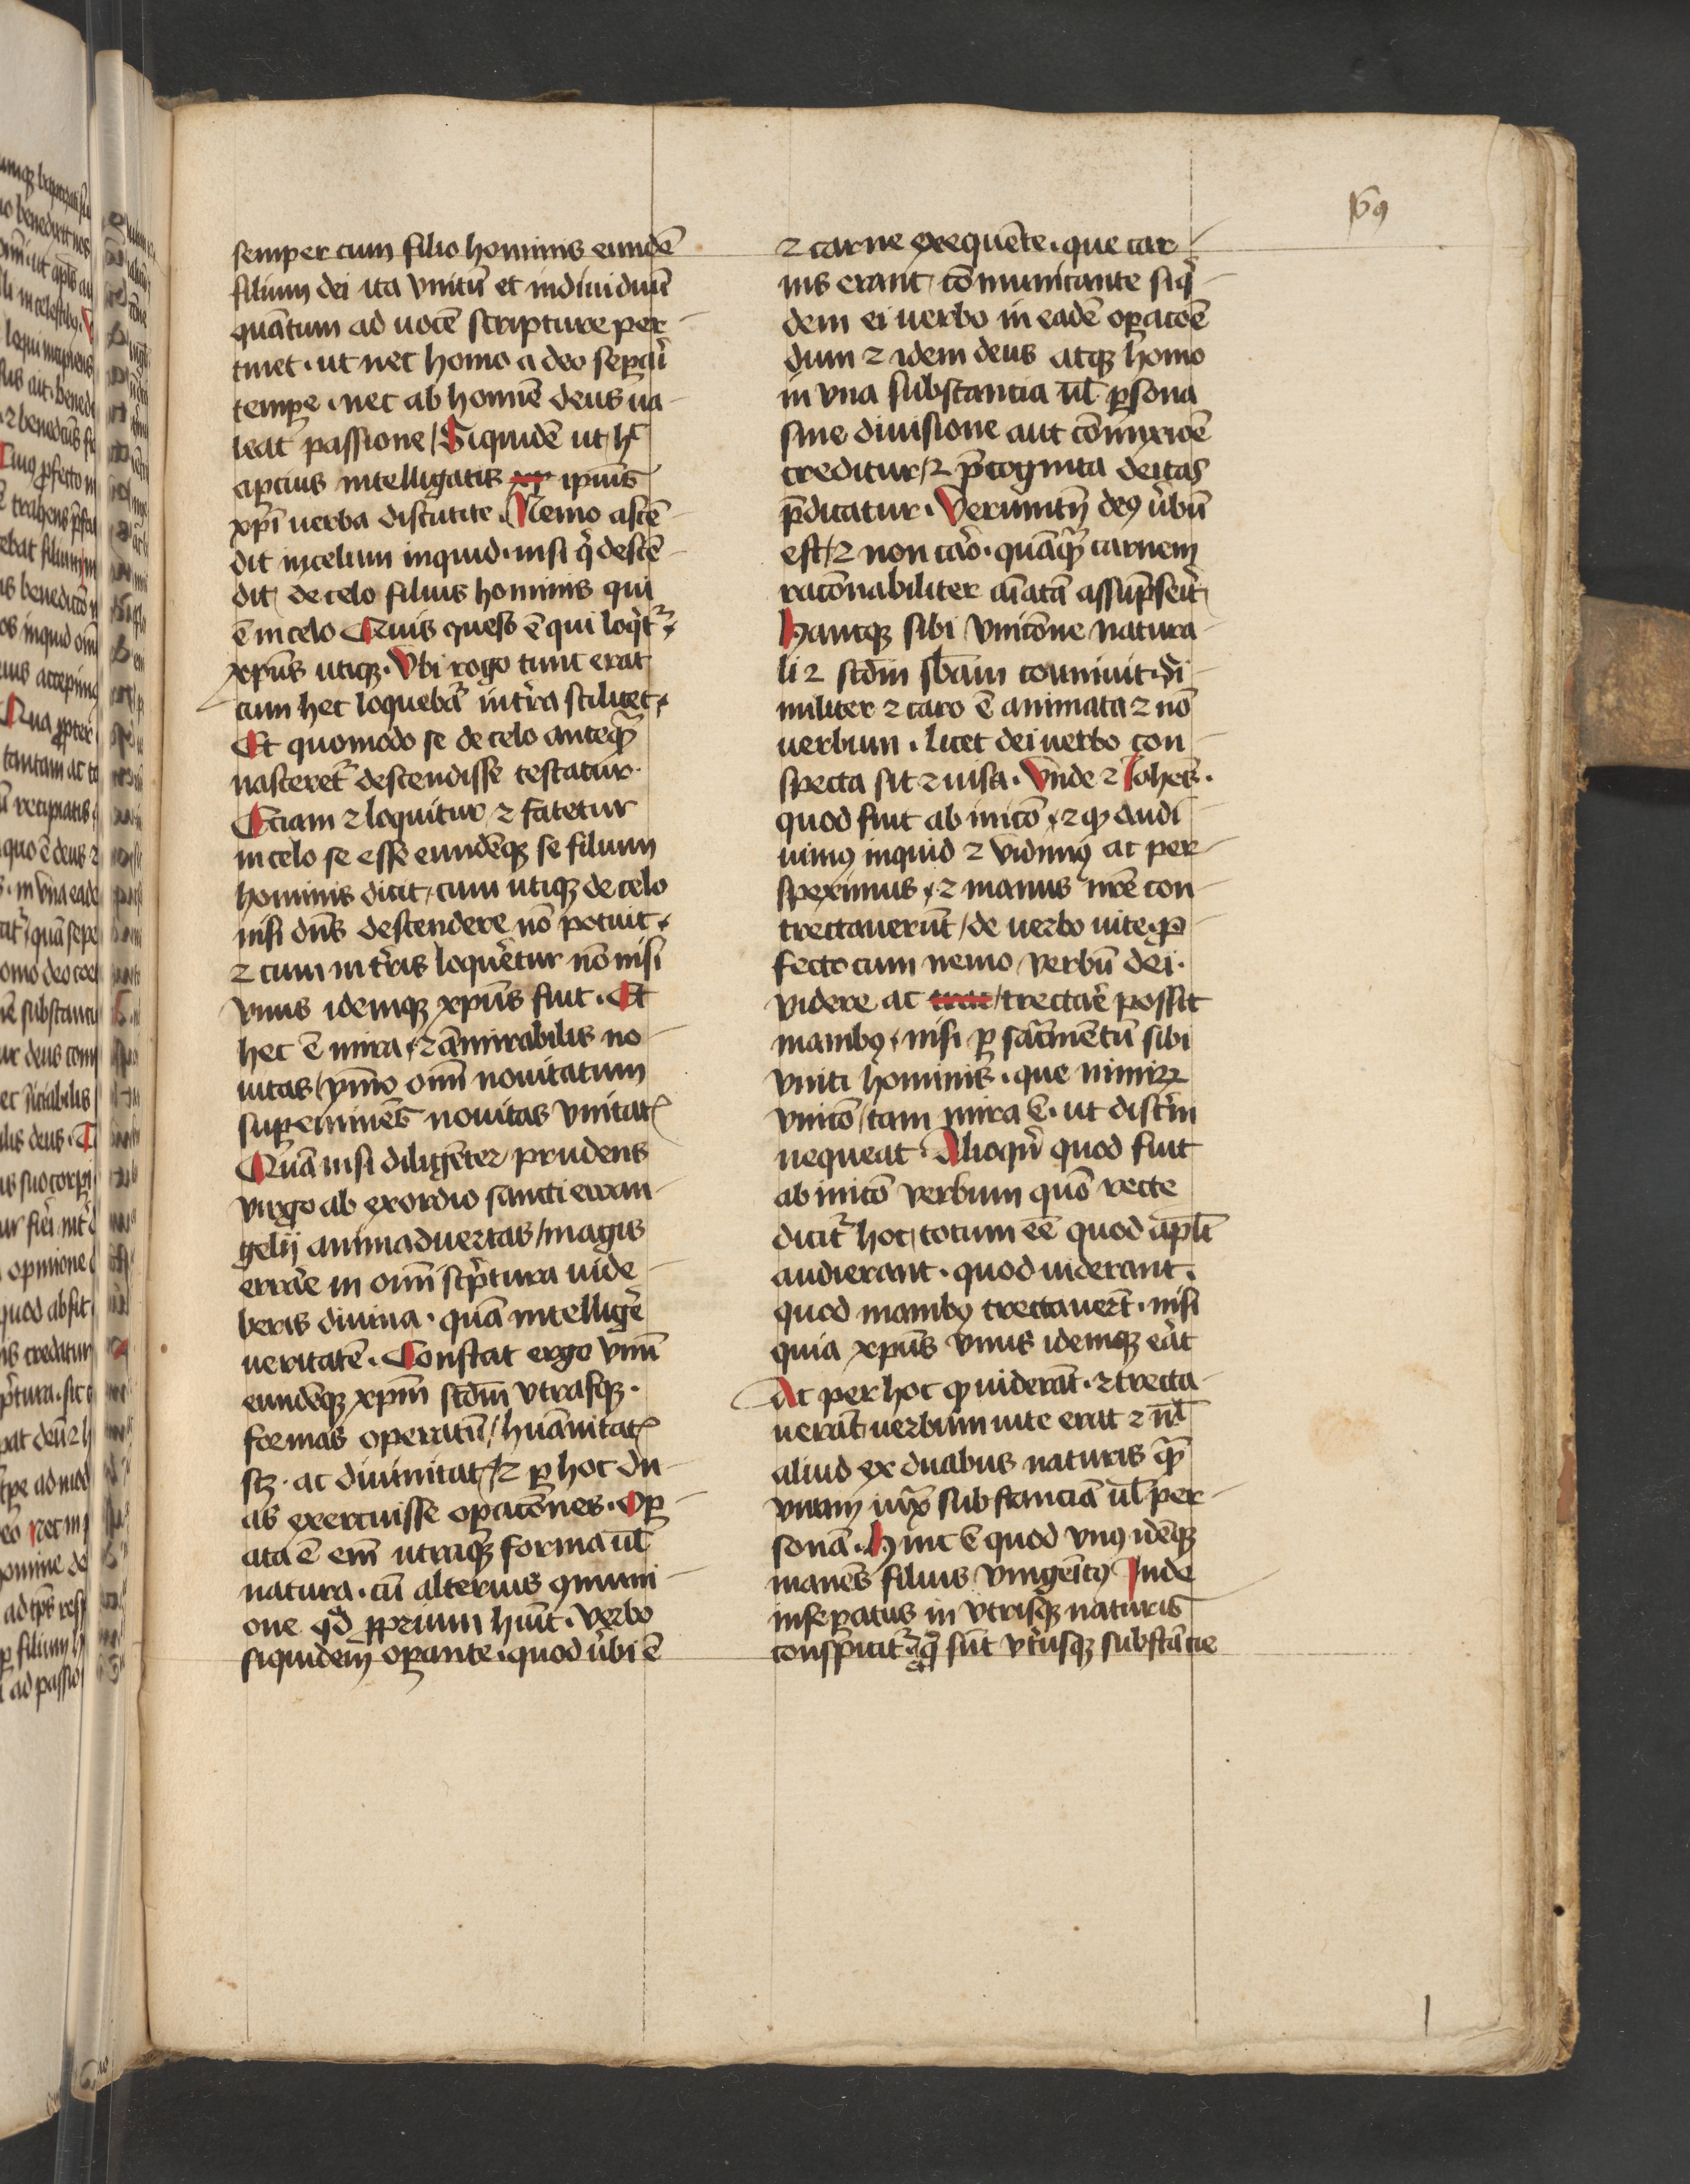 semper cum filio hominis eundē
filium dei ita vnitū et indiuiduū
quātum ad uocē scripture per
tinet · ut nec homo a deo separi
tempe · nec ab homīe deus ua
leat passione / Siquidē ut hͨ
apcius intelligatis xp ipius
xpī uerba discutite · Nemo ascē
dit in celum inquid · nisi q̇ descē
dit de celo filius hominis qui
ē in celo Quis queso ē qui loqͥtͬ ·
xpūs utiqꝫ · Vbi rogo tunc erat
cum hec loquebat̄ in tͬra scilicet ·
Et quomodo se de celo anteqͣ̄
nasceret̄ descendisse testatur ·
Eciam ⁊ loquitur ⁊ fatetur
in celo se esse eundēqꝫ se filium
hominis dicit / cum utiqꝫ de celo
nisi dn̄s descendere nō potuit ·
⁊ cum in tͬris loquer̄tur nō nisi
vnus idemqꝫ xpūs fuit · Et
hec ē mira · ⁊ āmirabilis no
uitas / ymmo oīm nouitatum
suꝑeminēs nouitas vnitatꝭ
Quā nisi diligēter prudens
virgo ab exordio sancti ewan
gelij animaduertas / magis
errare in omī scͥptura uide
beris diuina · quā intelligēr
ueritatē · Constat ergo vnū
eundēqꝫ xpm̄ scdm̄ vtrasqꝫ ·
formas operatū / hūanitatꝭ
scꝫ · ac diuinitatꝭ / ⁊ ꝑ hoc du
as exercuisse oꝑacōnes · Oꝑ
ata ē em̄ utraqꝫ forma ul̄
natura · cū alterius ꝯmuni
one qͩ ꝓprium hūit · verbo
siquidem oꝑante · quod ūbi ē
69
⁊ carne exequēte · que car
nis erant / cōmunicante siqͥ
dem ei uerbo in eadē oꝑacōē
dum ⁊ idem deus atqꝫ homo
in vna substancia ul̄ ꝑsona
sine diuisione aut cōmixtiōē
creditur / ⁊ p̄cognita deitas
p̄dicatur · Verūmtn̄ deꝰ ūbū
est / ⁊ non caro · quāqͣ̄ carnem
racōnabiliter aīatā assūpserit
Hancqꝫ sibi vnicōne natura
li ⁊ scdm̄ sb̄am coūniuit · Si
militer ⁊ caro ē animata ⁊ nō
uerbum · licet dei uerbo con
specta sit ⁊ uisa · Vnde ⁊ Johēs ·
quod fuit ab inicō · ⁊ qͩ audi
uimꝰ inquid ⁊ vidimꝰ ac per
speximus · ⁊ manus nr̄e con
trectauerūt / de uerbo uite · ꝓ
fecto cum nemo verbū dei ·
videre ac trac / trectar̄e possit
manibꝰ · nisi ꝑ sacͣmētū sibi
vniti hominis · que nimiꝝ
vnicō / tam mira ē · ut discͬni
nequeat · Alioqn̄ quod fuit
ab inicō verbum quō recte
dicitͬ hoc / totum eē quod apl̄i
audierant · quod uiderant ·
quod manibꝰ trectauerūt · nisi
quia xpūs vnus idemqꝫ erat
Ac per hoc qͩ uiderāt · ⁊ trecta
uerāt uerbum uite erat ⁊ nl̄
aliud ex duabus naturis qͣ̄
vnam iuxͣ substanciā ul̄ per
sonā · Hinc ē quod vnꝰ idēqꝫ
manēs filius vnigeītꝰ Inde
inseꝑatus in vtrisqꝫ naturis
conspicitͬ ⁊ q̄ sūt vtͥusqꝫ substācie